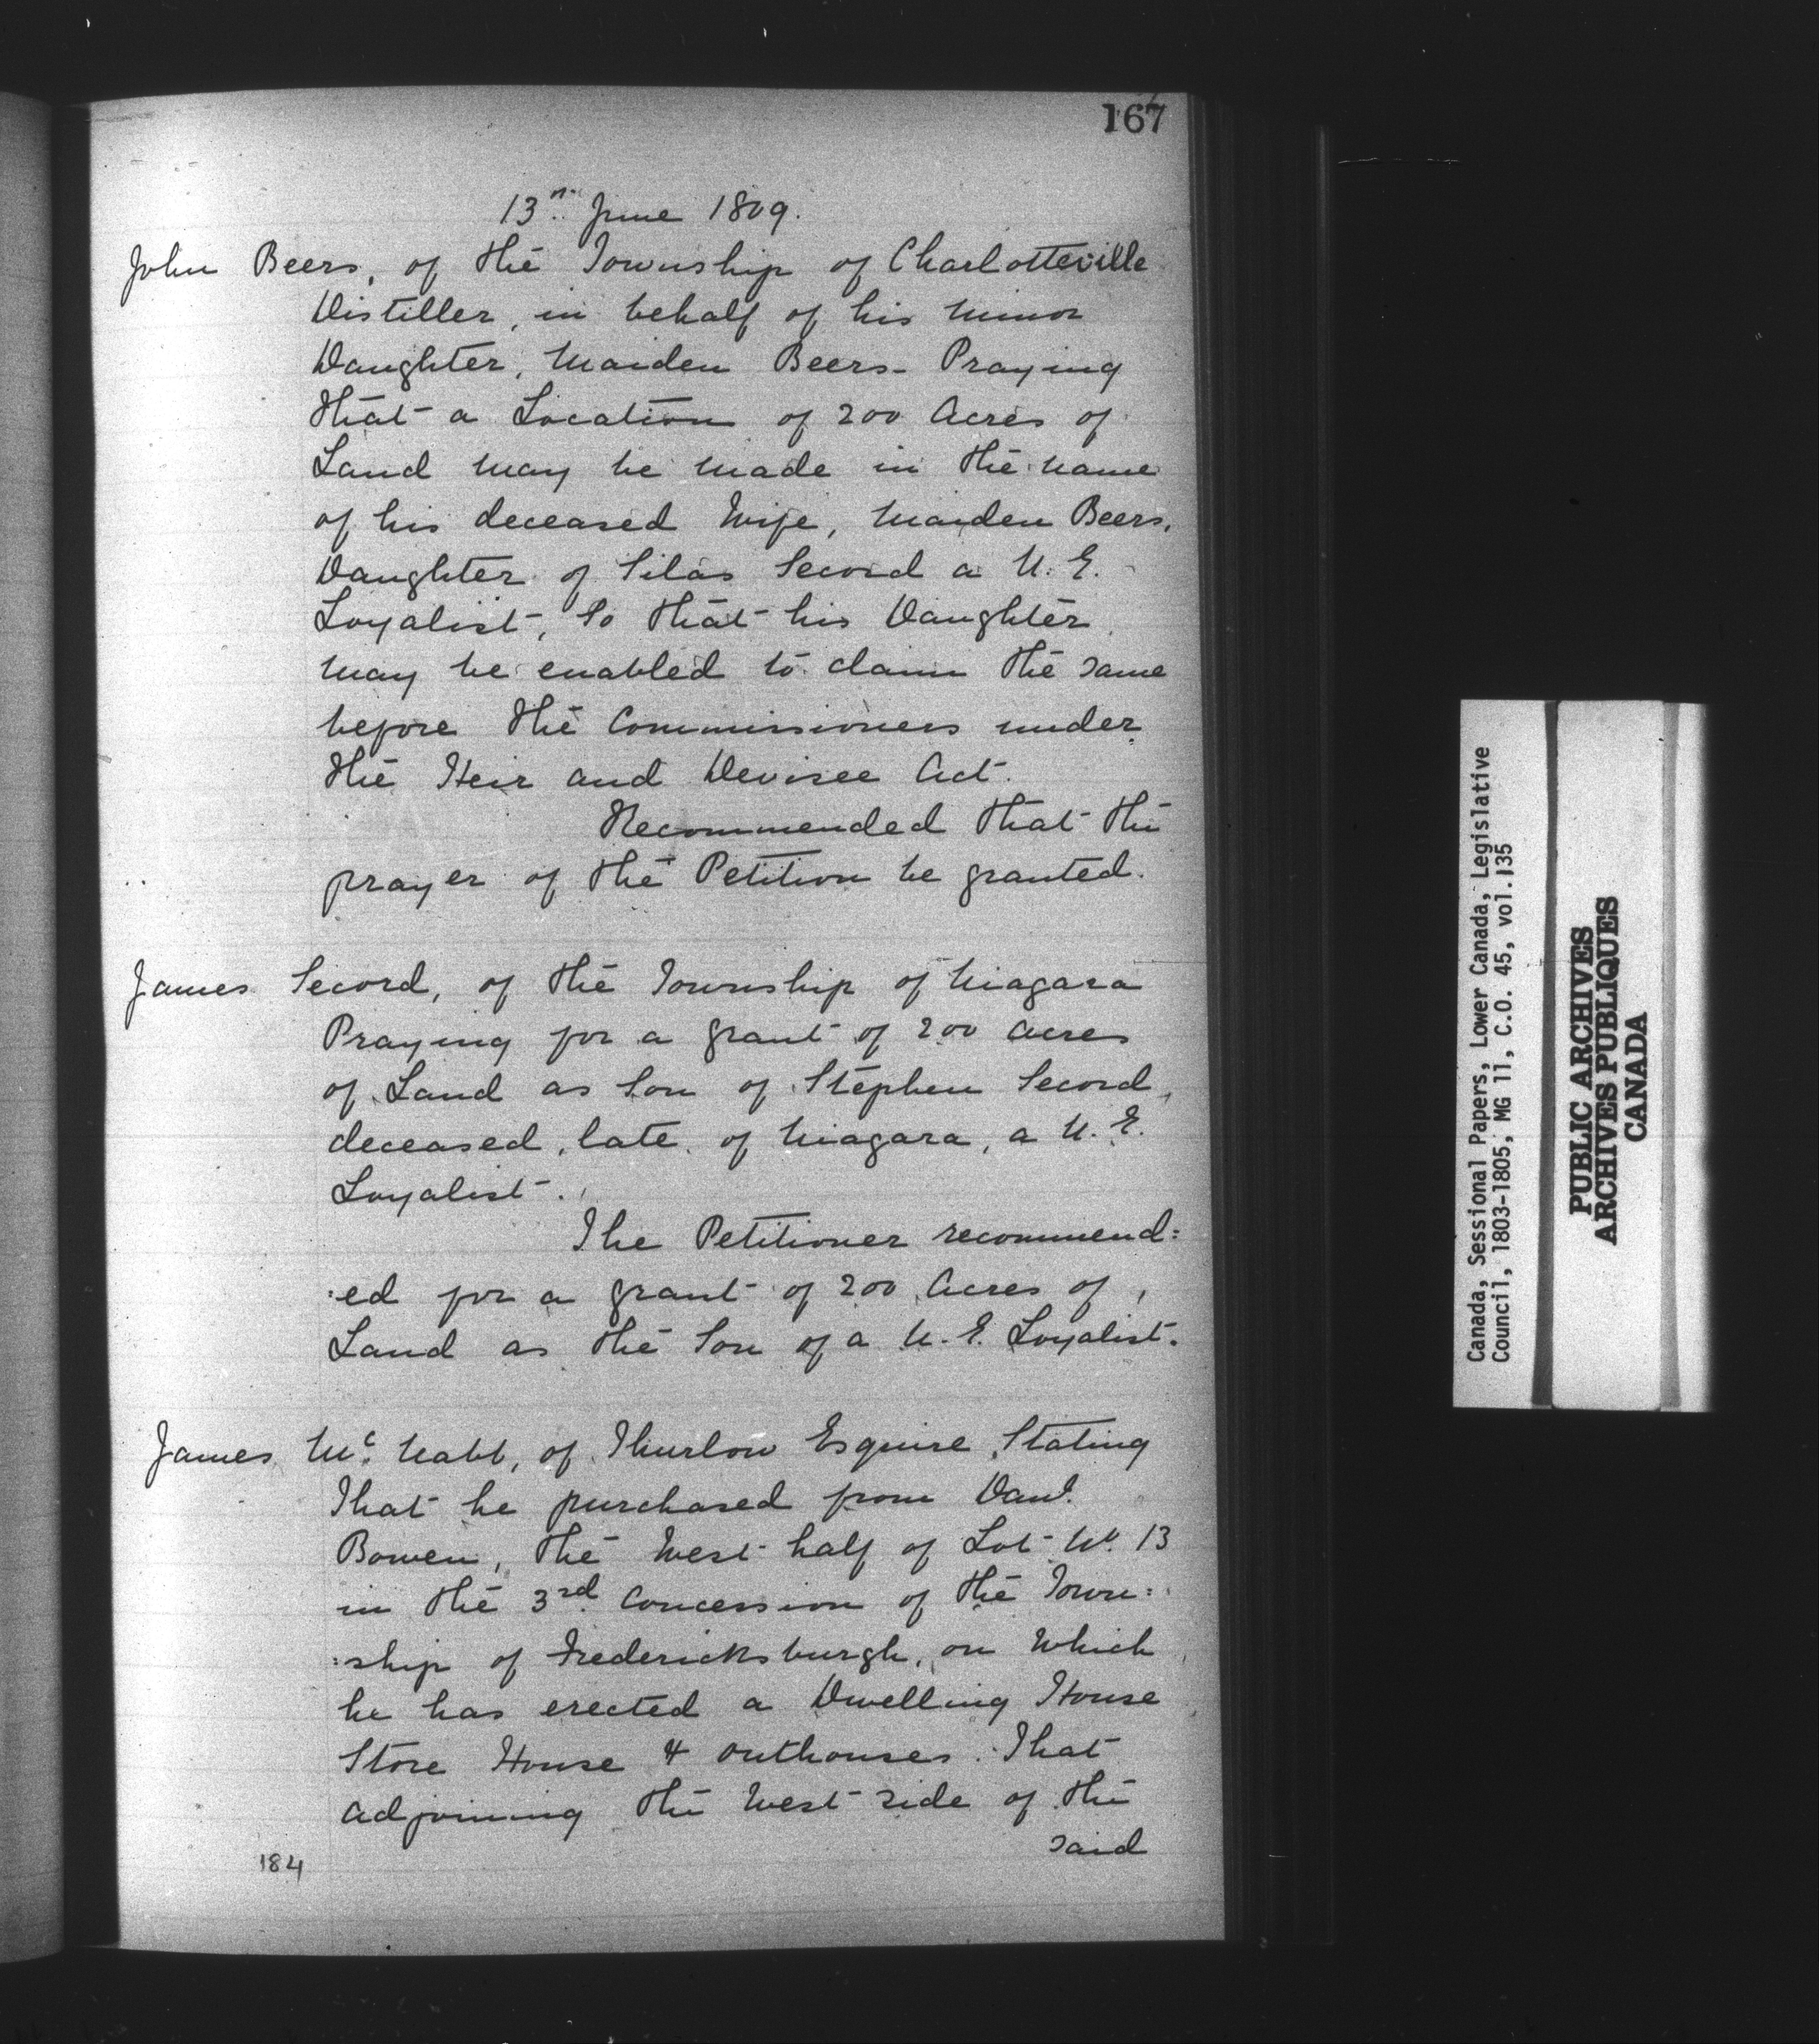 167
13th June 1809.
John Beers, of the Township of Charlotteville
Distiller, in behalf of his Minor
Daughter, Maiden Beers - Praying
that a Location of 200 Acres of
Land may be made in the name
of his deceased Wife, Maiden Beers,
Daughter of Silas Secord a U. E.
Loyalist, So that his Daughter
may be enabled to claim the same
before the Commissioners under
the Heir and Devisee Act.
Recommended that the
prayer of the Petition be granted.
James Secord, of the Township of Niagara
Praying for a grant of 200 acres
of Land as Son of Stephen Secord,
deceased, late of Niagara, a U. E.
Loyalist.
The Petitioner recommend:
:ed for a grant of 200 Acres of
Land as the Son of a U. E. Loyalist.
James McNabb, of Thurlow Esquire, Stating
That he purchased from Danl.
Bowen, the West half of Lot No. 13
in the 3rd Concession of the Town:
:ship of Fredericksburgh, on Which
he has erected a Dwelling House
Store House & outhouses. That
adjoining the West side of the
said
184
Canada, Sessional Papers, Lower Canada, Legislative
Council, 1803-1805, MG 11, C.O. 45, vol.135
PUBLIC ARCHIVES
ARCHIVES PUBLIQUES
CANADA